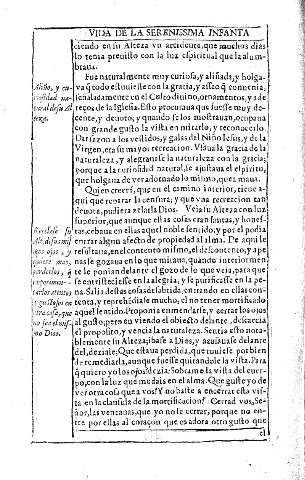 VIDA DE LA SERENISSIMA INFANTA
ciendo en su Alteza vn accidente, que muchos dias
lo tenia preuisto con la luz espiritual que la alum-
braua.
Fue naturalmente muy curiosa, y aliñada, y holga-
ua que todo estuuiesse con la gracia, y asseo que conuenia,
señaladamente en el Culto diuino, ornamentos, y ade-
reços de la Iglesia. Esto procuraua que fuesse muy de-
cente, y deuoto; y quando se los mostrauan, ocupaua
con grande gusto la vista en mirarlo, y reconocerlo.
Dar sazon a los vestidos, y galas del Niño Iesus, y de la
Virgen, era su mayor recreacion. Vsaua la gracia de la
naturaleza, y alegrauase la naturaleza con la gracia;
porque a la curiosidad natural, se ajustaua el espiritu,
que holgaua de ver adornado lo mismo, que amaua.
Quien creerà, que en el camino interior, tiene a-
qui que reparar la censura; y que vna recreacion tan
deuota, pudiera zelarla Dios. Veìa su Alteza con luz
superior, que aunque ellas cosas eran santas, y hones-
tas, cebaua en ellas aquel noble sentido, y por el podia
entrar algun afecto de propiedad al alma. De aqui le
resultaua, en el contento mismo, el descontento, y ape-
nas se gozaua en lo que miraua, quando interiormen-
te le ponian delante el gozo de lo que veìa, para que
se entristeciesse en la alegria, y se purificasse en la pe-
na. Salia destas cosas advertida, entrando en ellas con-
tenta, y reprehẽdiase mucho, el no tener mortificado
aquel sentido. Proponia enmendarse, y cerrar los ojos
al gusto; pero en viendo el obiecto delante, desfarcia
el proposito, y vencia la naturaleza. Sentia esto nota-
blemente su Alteza; ibase a Dios, y acusauase delan-
te del, deziale: Que estaua perdida, que tuuiesse por bien
de remediarla, aunque fuesse quitandole la vista. Para
q̃ quiero yo los ojos (dezia) Sobrame la vista del cuer-
po, con la luz que me dais en el alma. Que guste yo de
ver otra cosa que a vos? Y no baste a encerrar esta vis-
ta en la clausula de la mortificacion? Cerrad vos, Se-
ñor, las ventanas, que yo no se cerrar, porque no en-
tre por ellas al coraçon que os adora otro gusto que
el
Aliño, y cu-
riosidad na-
tural de su Al-
teza.
Dios